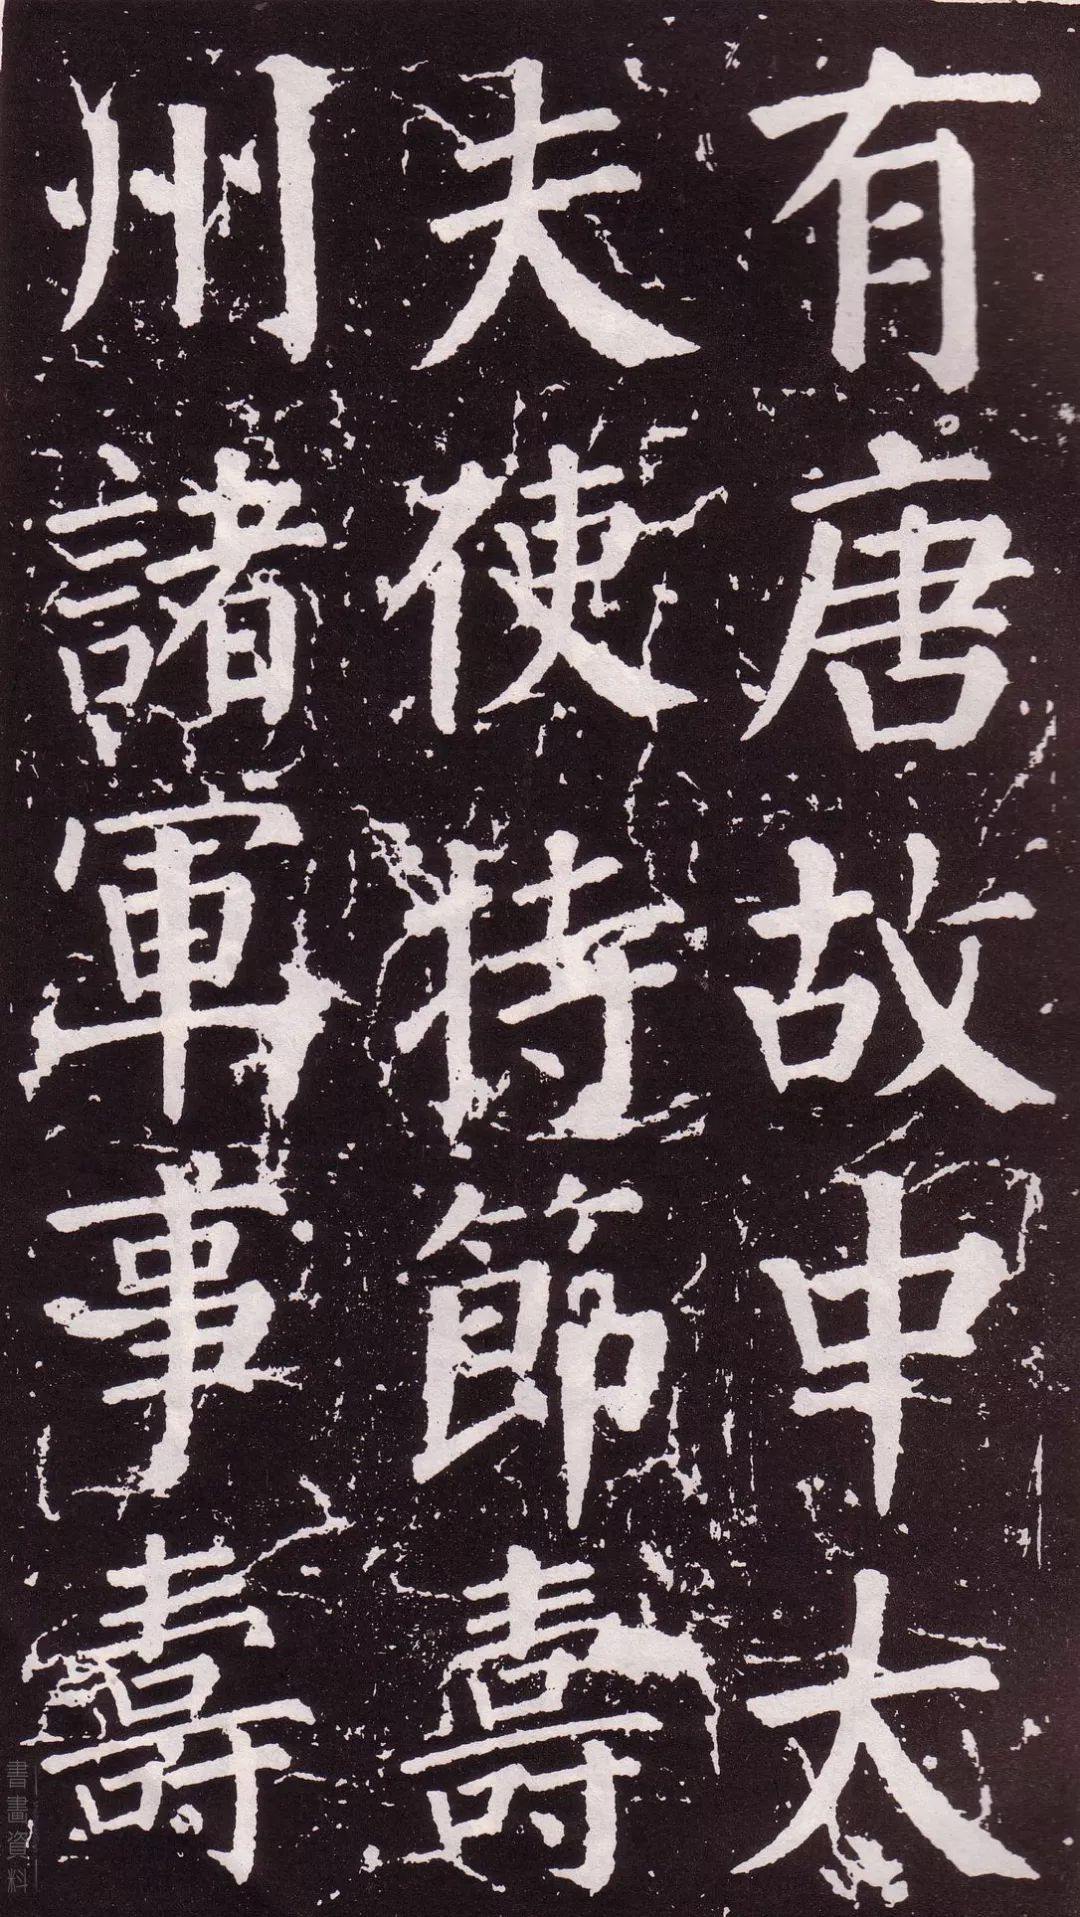 有唐故中大
夫使持節壽
州諸軍事壽
書畫資料